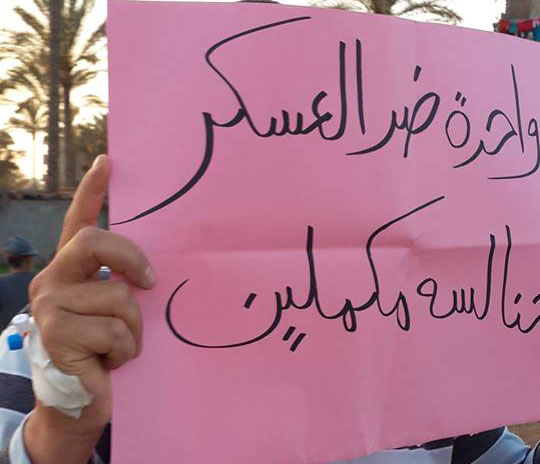 واحدة ضد العسكر
حنا لسه مكملين